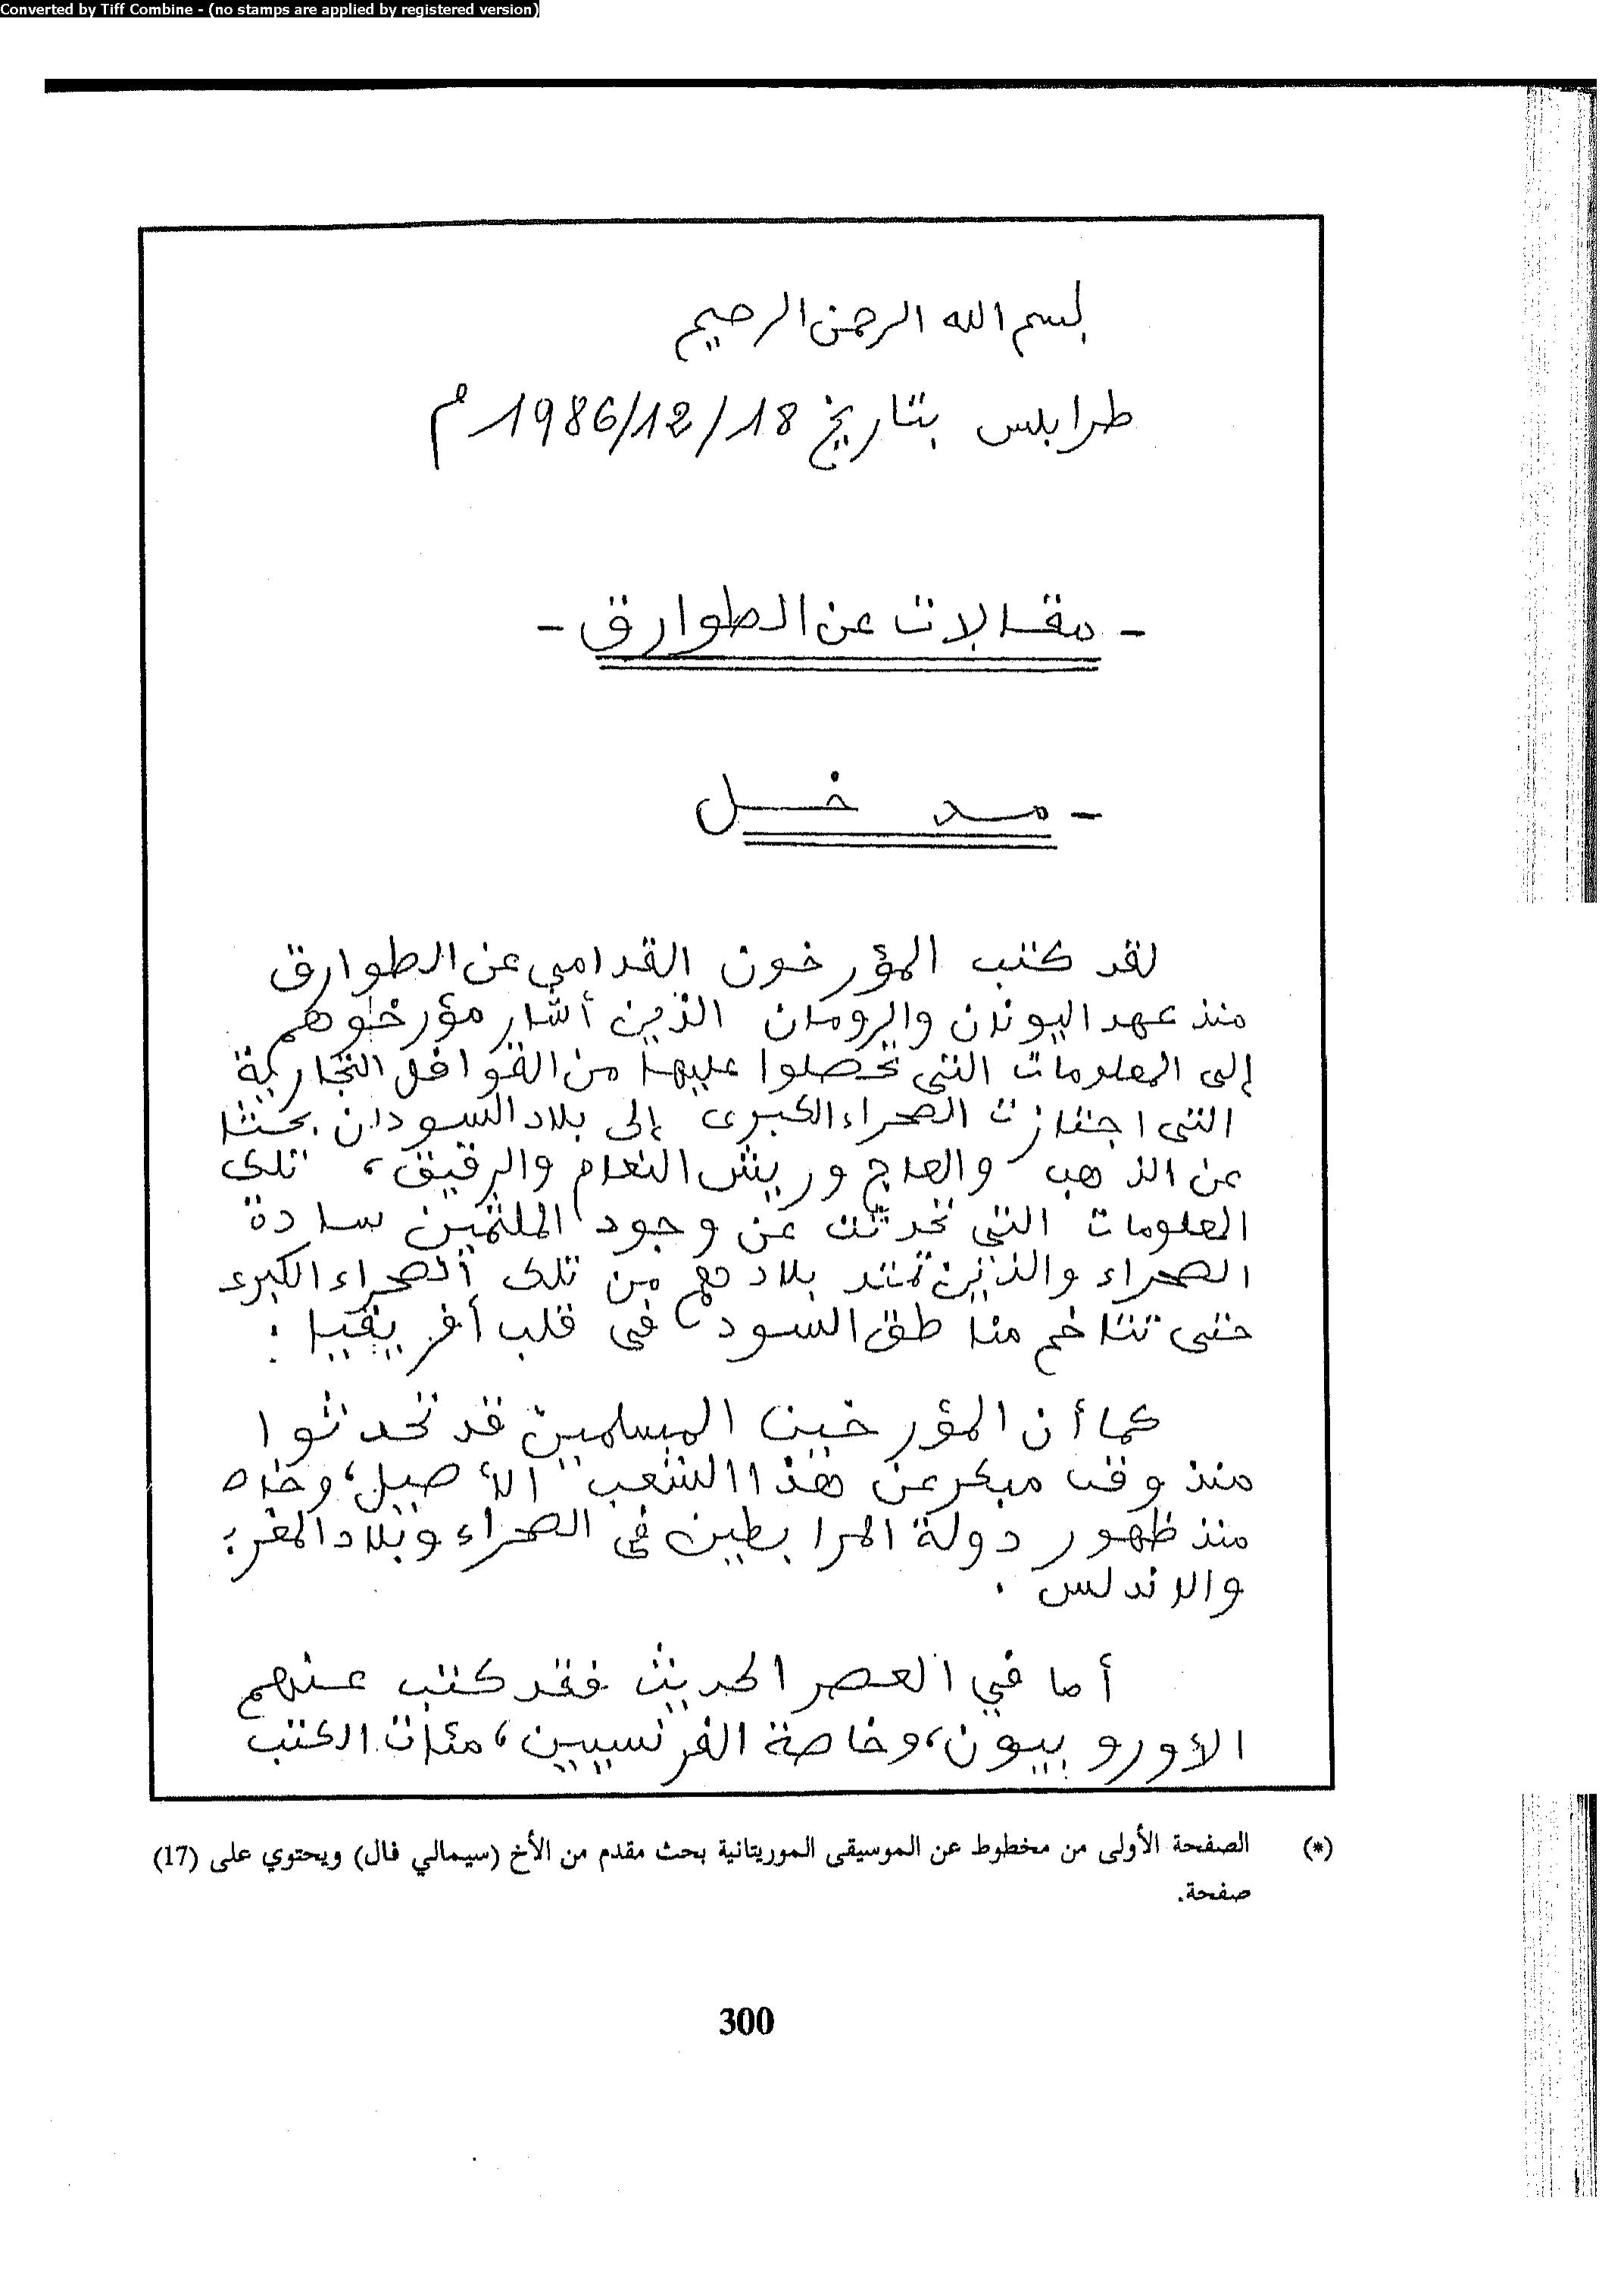 Converted by Tiff Combine - (no stamps are applied by registered version)
بسم الله الرحمن الرحيم
طرابلس بتاريخ 18/12/1986 م
- مقالات عن الطوارق -
- مدخل
لقد كتب المؤرخون القدامى عن الطوارق
منذ عهد اليونان والرومان الذين أشار مؤرخوهم
إلى المعلومات التى تحصلوا عليها من القوافل التجارية
التى اجتازت الصحراء الكبرى إلى بلاد السودان بحثا
عن الذهب والعاج وريش النعام والرقيق، تلك
المعلومات التى تحدثت عن وجود الملثمين سادة
الصحراء والذين تمتد بلادهم من تلك الصحراء الكبرى
حتى تتاخم مناطق السود فى قلب أفريقيا :
كما أن المؤرخين المسلمين قد تحدثوا
منذ وقت مبكر عن هذا الشعب الأصيل، وخاصة
منذ ظهور دولة المرابطين فى الصحراء وبلاد المغرب
والاندلس .
أما في العصر الحديث فقد كتب عنهم
الأوروبيون، وخاصة الفرنسيين، مئات الكتب
(*) الصفحة الأولى من مخطوط عن الموسيقى الموريتانية بحث مقدم من الأخ (سيمالي فال) ويحتوي على (17)
صفحة.
300